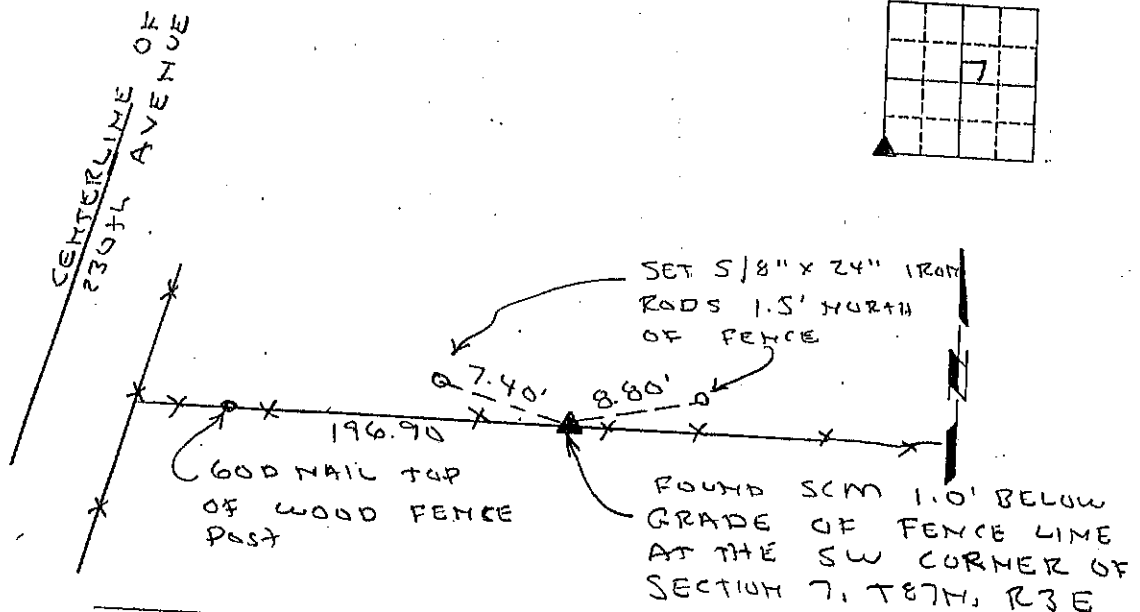 CENTERLINE OF
230th AVENUE
7
SET 5/8" x 24" IRON
RODS 1.5' NORTH
OF FENCE
7.40'
8.80'
N
196.90
60D NAIL TOP
OF WOOD FENCE
POST
FOUND SCM 1.0' BELOW
GRADE OF FENCE LINE
AT THE SW CORNER OF
SECTION 7, T87N, R3E